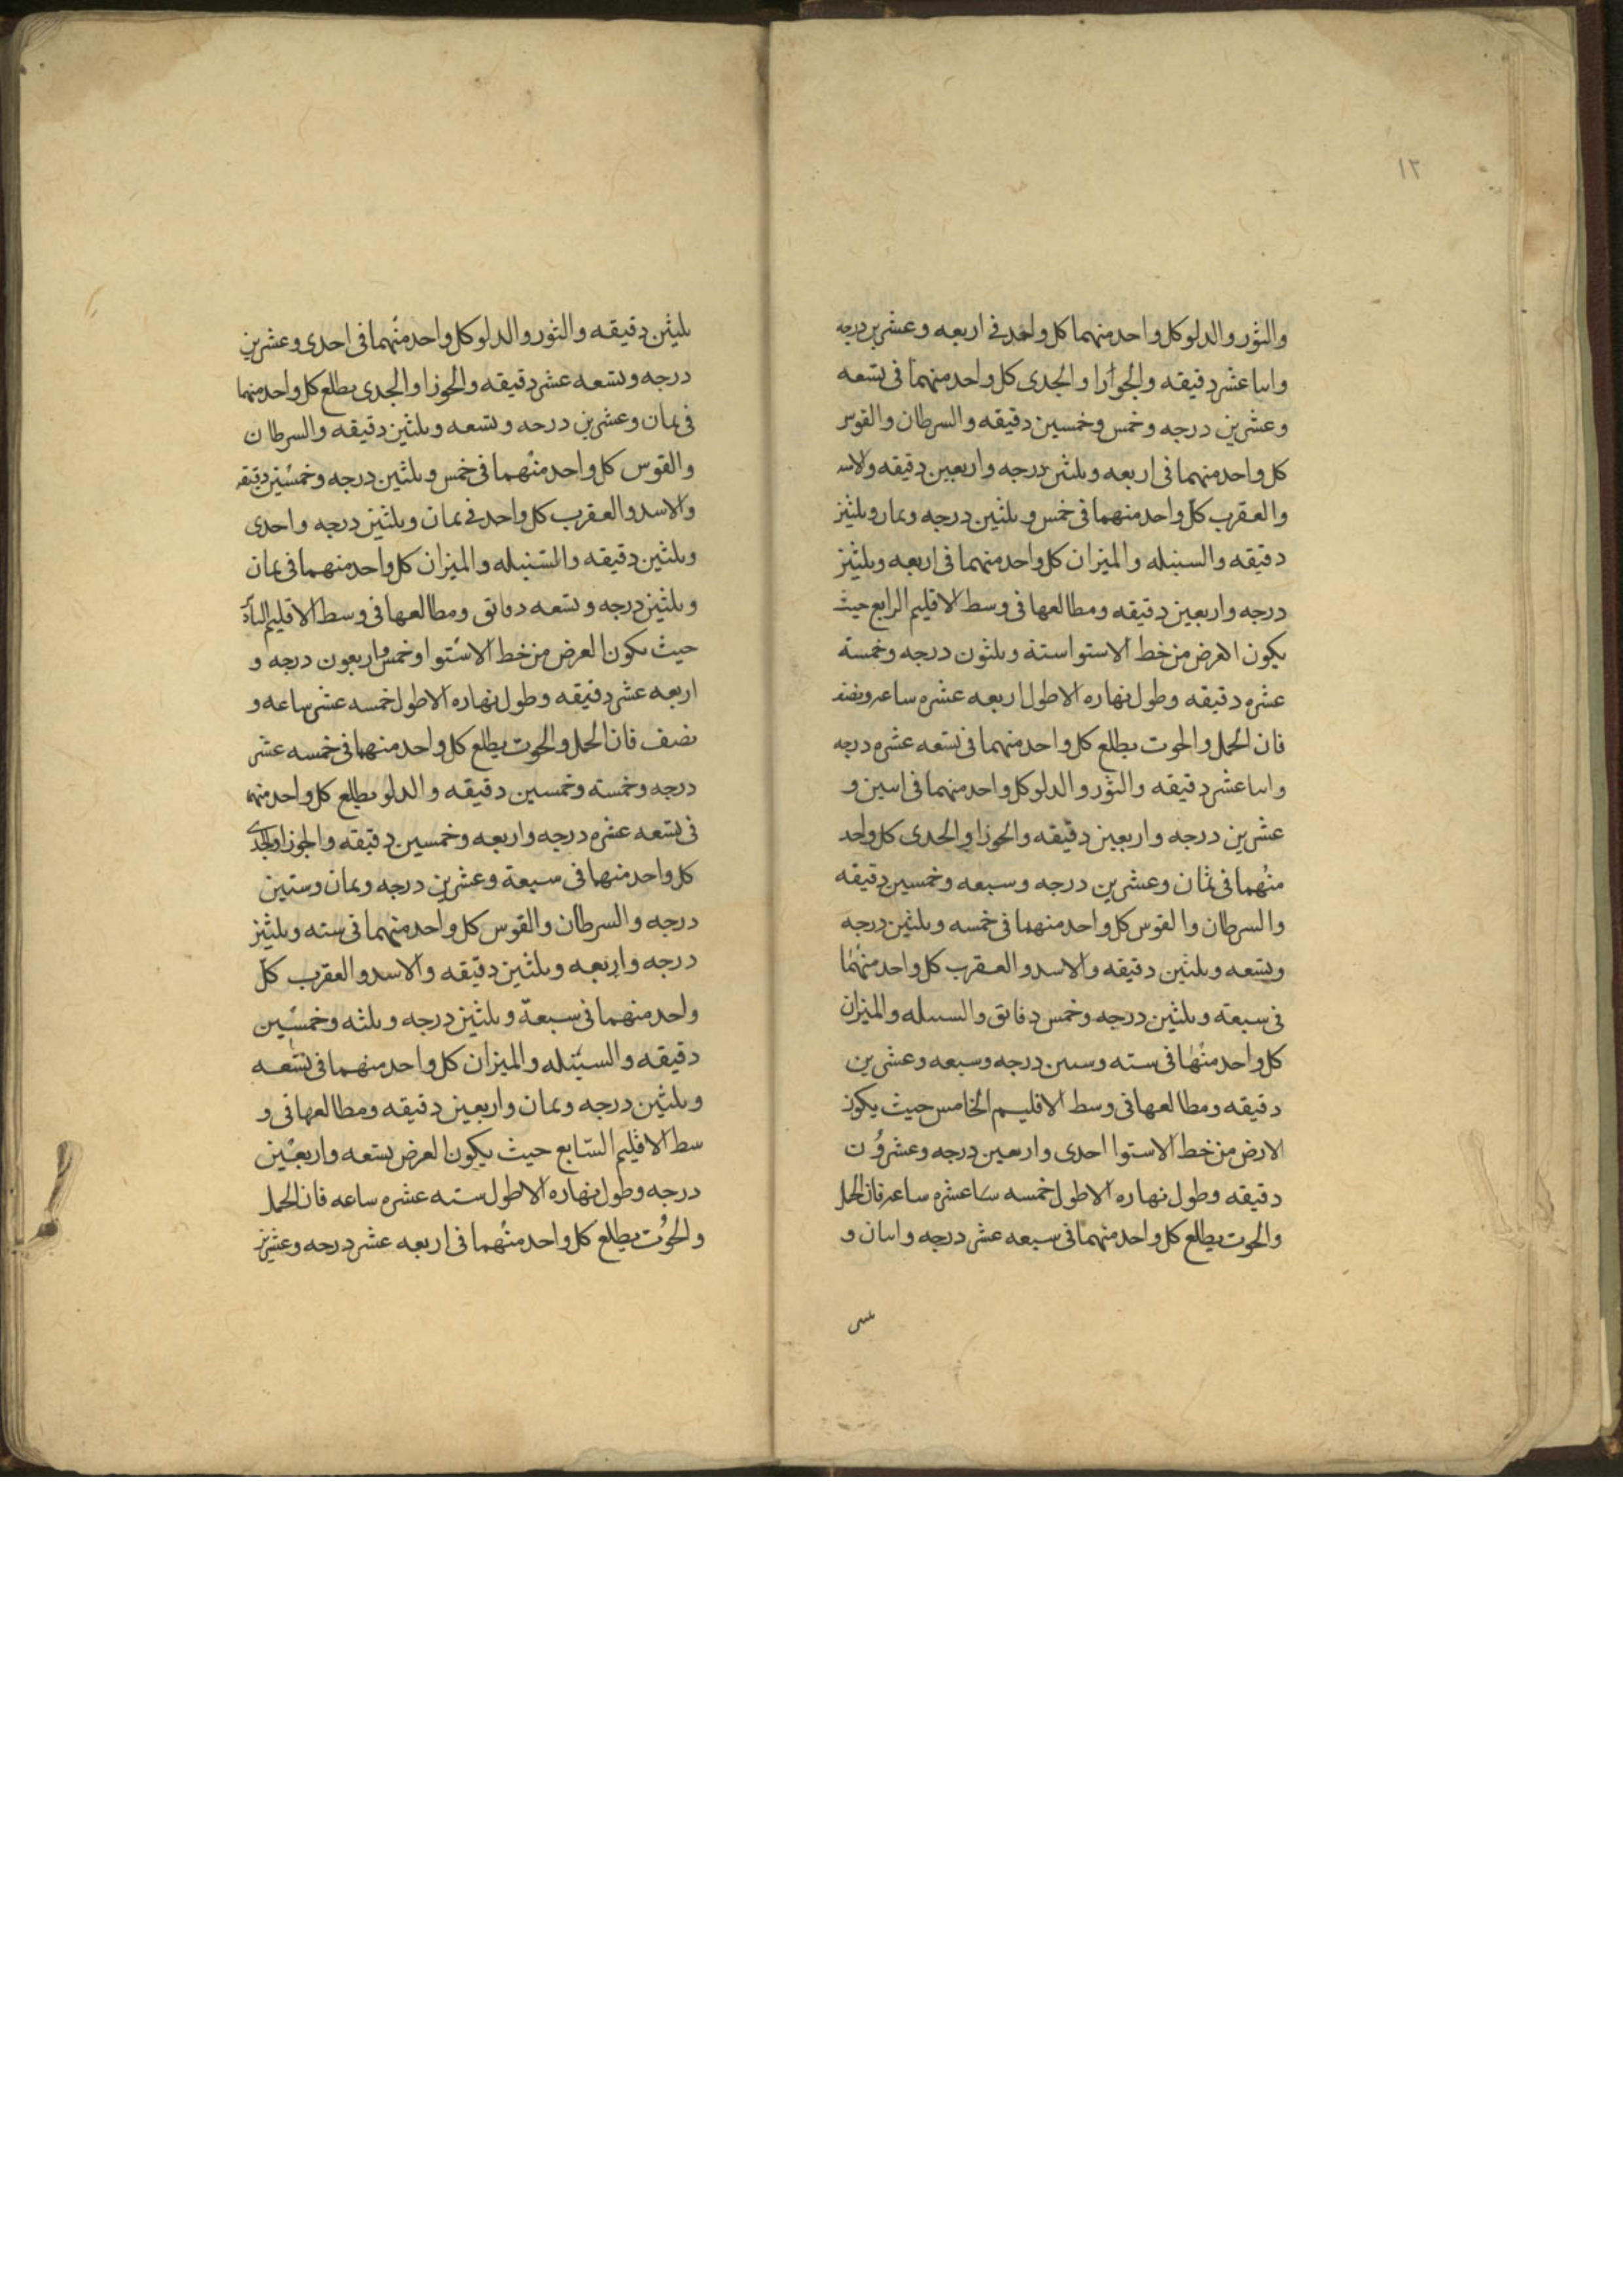 ١٣
والثور والدلو كل واحد منهما كل واحد في اربعه وعشرين درجه
واثنا عشر دقيقه والجوازا والجدى كل واحد منهما في تسعه
وعشرين درجه وخمس وخمسين دقيقه والسرطان والقوس
كل واحد منهما في اربعه وثلثين درجه واربعين دقيقه والاسد
والعقرب كل واحد منهما في خمس وثلثين درجه وثمان وثلثين
دقيقه والسنبله والميزان كل واحد منهما في اربعه وثلثين
درجه واربعين دقيقه ومطالعها في وسط الاقليم الرابع حيث
يكون العرض من خط الاستوا ستة وثلثون درجه وخمسة
عشره دقيقه وطول نهاره الاطول اربعه عشره ساعه ونصف
فان الحمل والحوت يطلع كل واحد منهما في تسعه عشره درجه
واثنا عشر دقيقه والثور والدلو كل واحد منهما في اثنين و
عشرين درجه واربعين دقيقه والجوزا والجدى كل واحد
منهما في ثمان وعشرين درجه وسبعه وخمسين دقيقه
والسرطان والقوس كل واحد منهما في خمسه وثلثين درجه
وتسعه وثلثين دقيقه والاسد والعقرب كل واحد منهما
في سبعة وثلثين درجه وخمس دقائق والسنبله والميزان
كل واحد منها في سته وستين درجه وسبعه وعشرين
دقيقه ومطالعها في وسط الاقليم الخامس حيث يكون
الارض من خط الاستوا احدى واربعين درجه وعشرون
دقيقه وطول نهاره الاطول خمسه عشره ساعه فان الحمل
والحوت يطلع كل واحد منهما في سبعه عشر درجه واثنان و
ثلثين
ثلثين دقيقه والثور والدلو كل واحد منهما في احدى وعشرين
درجه وتسعه عشر دقيقه والجوزا والجدى يطلع كل واحد منهما
في ثمان وعشرين درجه وتسعه وثلثين دقيقه والسرطان
والقوس كل واحد منهما في خمس وثلثين درجه وخمسين دقيقه
والاسد والعقرب كل واحد في ثمان وثلثين درجه واحدى
وثلثين دقيقه والسنبله والميزان كل واحد منهما في ثمان
وثلثين درجه وتسعه دقائق ومطالعها في وسط الاقليم
حيث يكون العرض من خط الاستوا وخمس واربعون درجه و
اربعه عشر دقيقه وطول نهاره الاطول خمسه عشر ساعه و
نصف فان الحمل والحوت يطلع كل واحد منهما في خمسه عشر
درجه وخمسة وخمسين دقيقه والدلو يطلع كل واحد منهم
في تسعه عشره درجه واربعه وخمسين دقيقه والجوزا والجدى
كل واحد منهما في سبعة وعشرين درجه وثمان وستين
درجه والسرطان والقوس كل واحد منهما في سته وثلثين
درجه واربعه وثلثين دقيقه والاسد والعقرب كل
واحد منهما في سبعة وثلثين درجه وثلثه وخمسين
دقيقه والسنبله والميزان كل واحد منهما في تسعه
وثلثين درجه وثمان واربعين دقيقه ومطالعها في و
سط الاقليم السابع حيث يكون العرض تسعه واربعين
درجه وطول نهاره الاطول سته عشره ساعه فان الحمل
والحوت يطلع كل واحد منهما في اربعه عشر درجه وعشرين